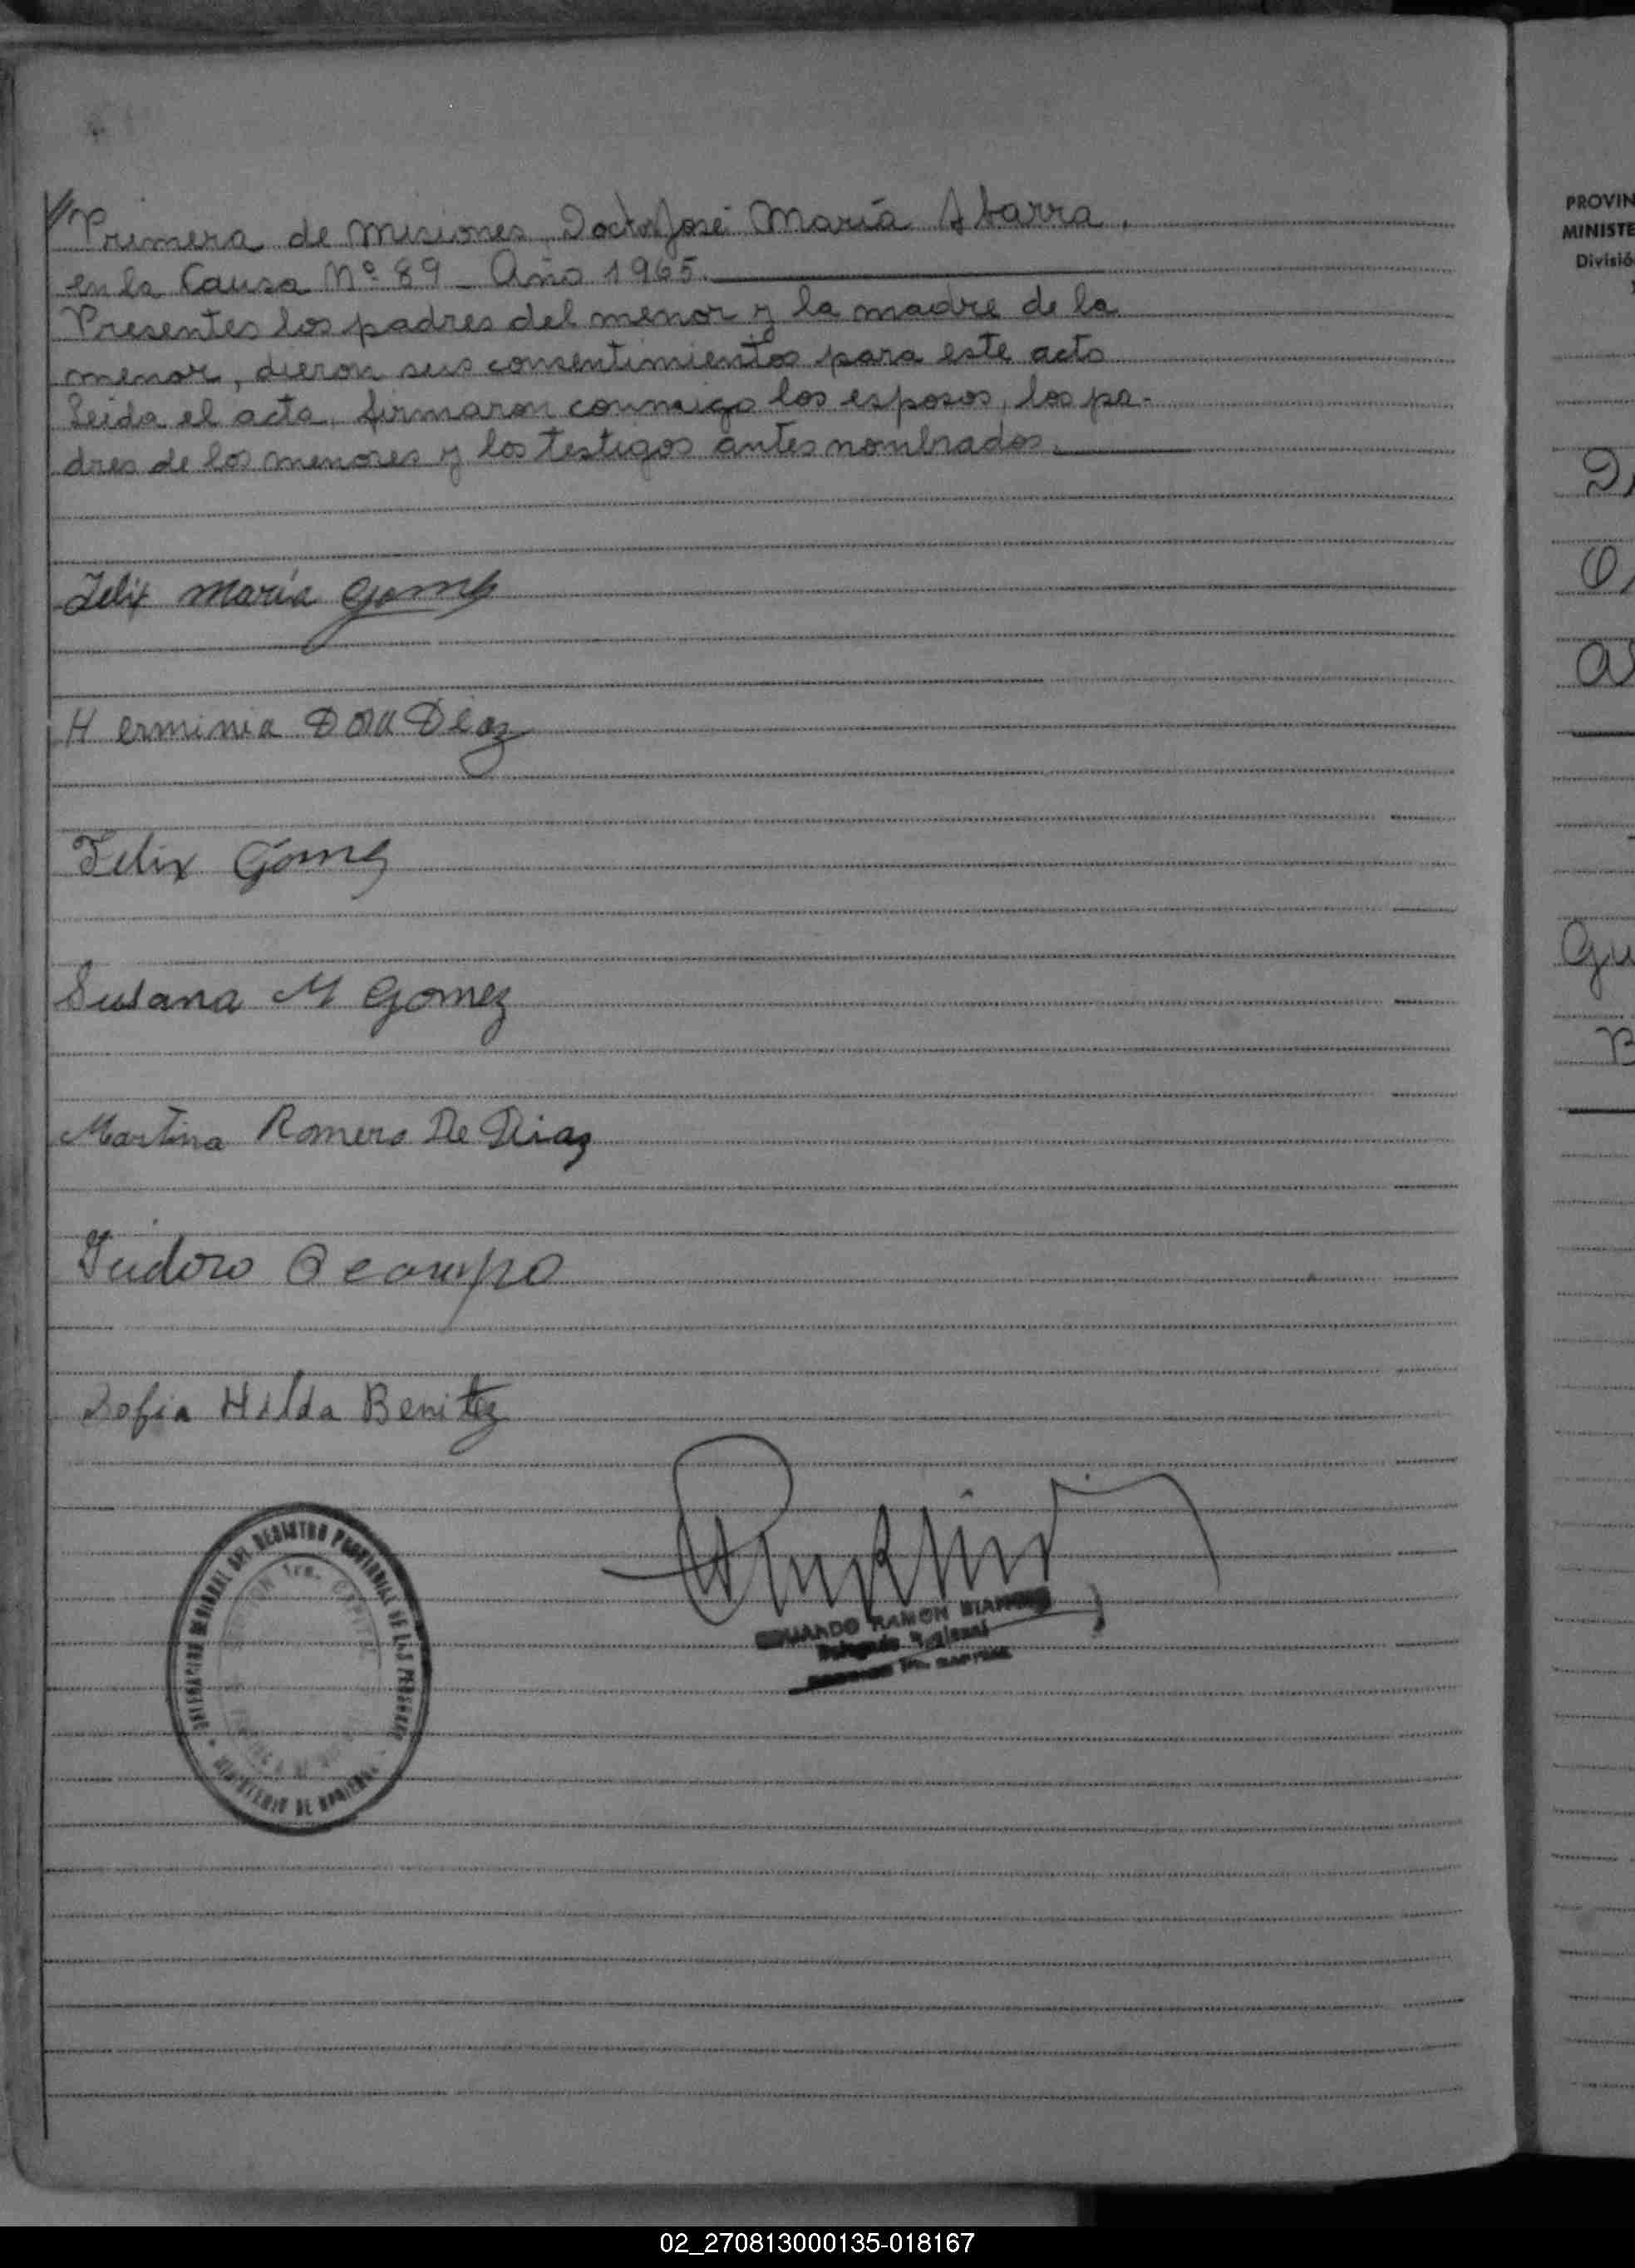 //Primera de Misiones, Doctor José María Abarra,
en la Causa Nº 89 - Año 1965.
Presentes los padres del menor y la madre de la
menor, dieron sus consentimientos para este acto
Leida el acta, firmaron conmigo los esposos, los pa-
dres de los menores y los testigos antes nombrados.
Felix María Gomez
Herminia Dora Diaz
Felix Gomez
Susana M Gomez
Martina Romero De Diaz
Isidoro Ocampo
Sofia Hilda Benitez
DELEGACION REGIONAL DEL REGISTRO PROVINCIAL DE LAS PERSONAS
MINISTERIO DE GOBIERNO
RAMON
Delegado Regional
PROVIN
MINISTE
Divisió
Gu
02_270813000135-018167